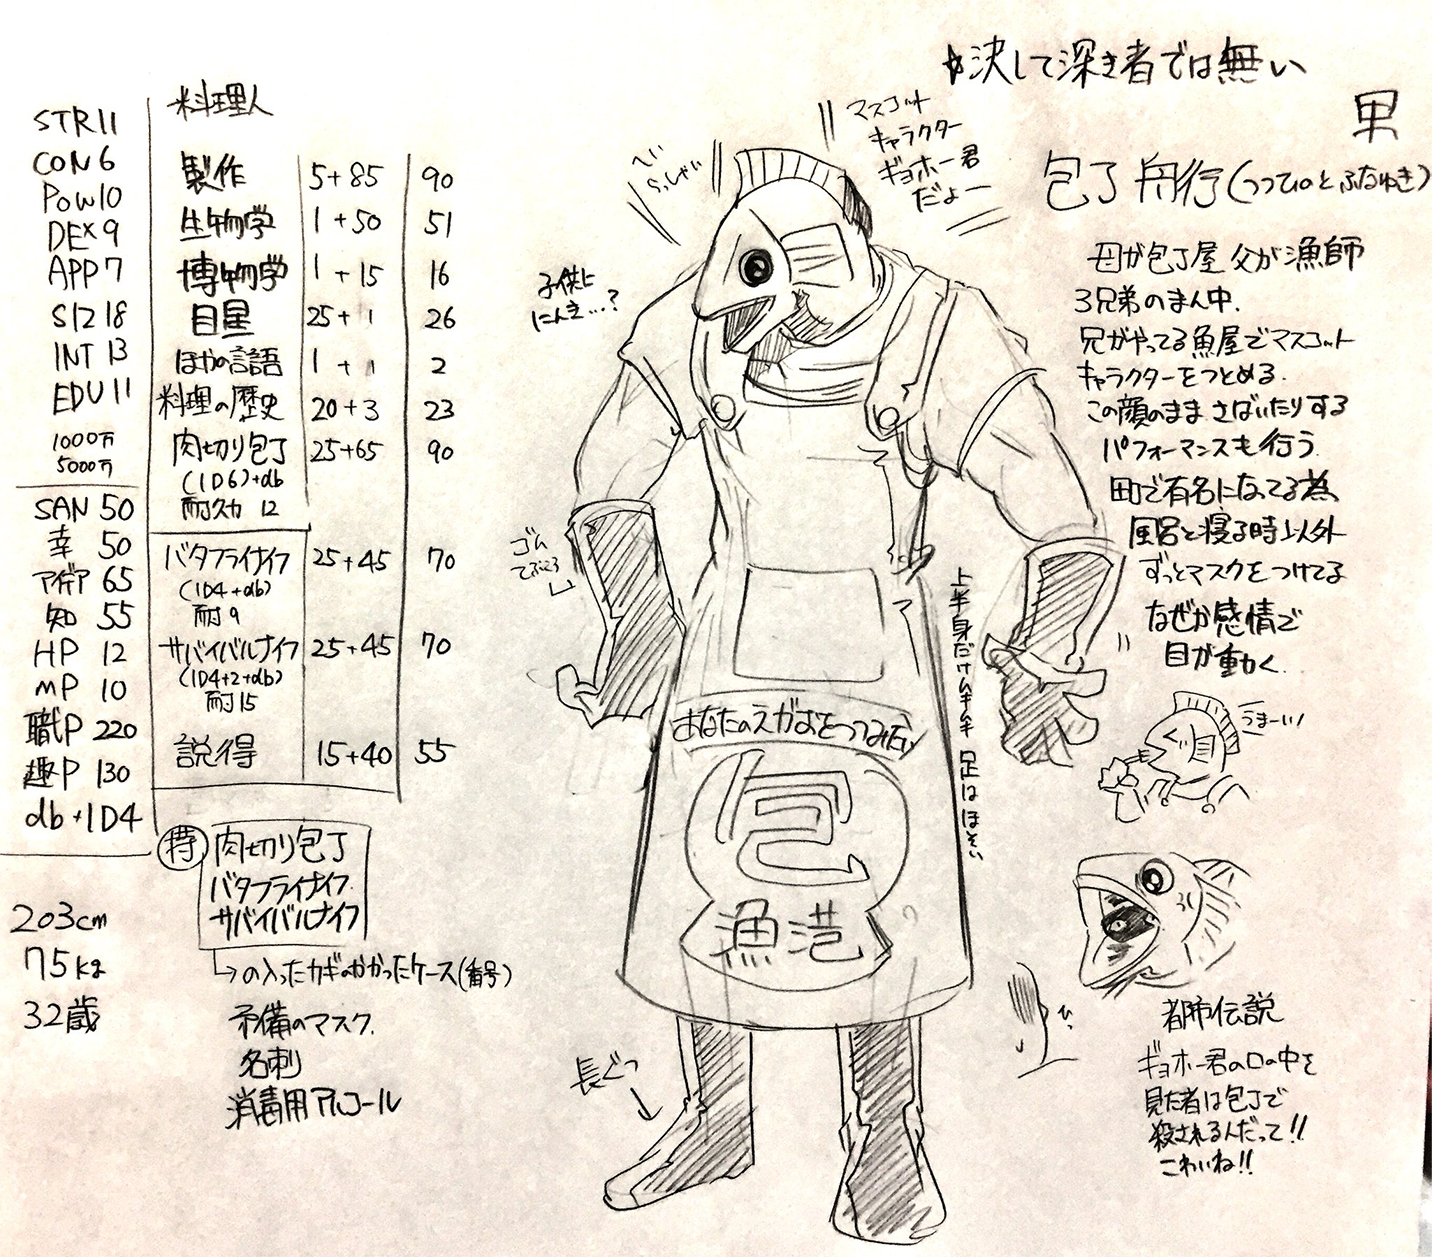 ☆決して深き者では無い
男
包丁舟行(つつひのとふなゆき)
母が包丁屋 父が漁師
3兄弟のまん中.
兄がやってる魚屋でマスコット
キャラクターをつとめる.
この顔のまま さばいたりする
パフォーマンスも行う.
町で有名になってる為、
風呂と寝る時以外
ずっとマスクをつけてる
なぜか感情で
目が動く.
うまーい!
都市伝説
ギョホー君の口の中を
見た者は包丁で
殺されるんだって!!
こわいね!!
ひ?
マスコット
キャラクター
ギョホー君
だよー
へい
らっしゃい
子供に
にんき…?
ゴム
てぶくろ
上半身だけムキムキ 足はほそい
あなたのえがおをつつみたい
包
漁港
長ぐつ
STR 11
CON 6
POW 10
DEX 9
APP 7
SIZ 18
INT 13
EDU 11
1000万
5000万
SAN 50
幸 50
アイデア 65
知 55
HP 12
MP 10
職P 220
趣P 130
db +1D4
203cm
75kg
32歳
料理人
製作 5+85 90
生物学 1+50 51
博物学 1+15 16
目星 25+1 26
ほかの言語 1+1 2
料理の歴史 20+3 23
肉切り包丁 25+65 90
(1D6)+db
耐久力 12
バタフライナイフ 25+45 70
(1D4+db)
耐9
サバイバルナイフ 25+45 70
(1D4+2+db)
耐15
説得 15+40 55
持 肉切り包丁
バタフライナイフ
サバイバルナイフ
→の入ったカギのかかったケース(番号)
予備のマスク.
名刺
消毒用アルコール